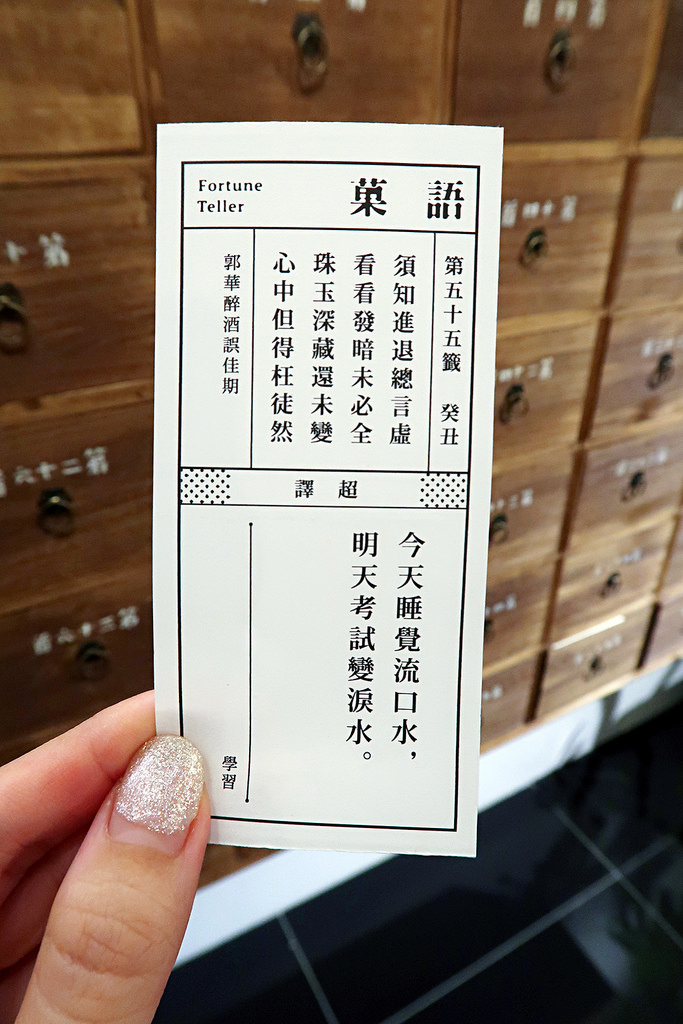 Fortune
Teller
語菓
第五十五籤 癸丑
須知進退總言虛
看看發暗未必全
珠玉深藏還未變
心中但得枉徒然
郭華醉酒誤佳期
超譯
今天睡覺流口水，
明天考試變淚水。
學習